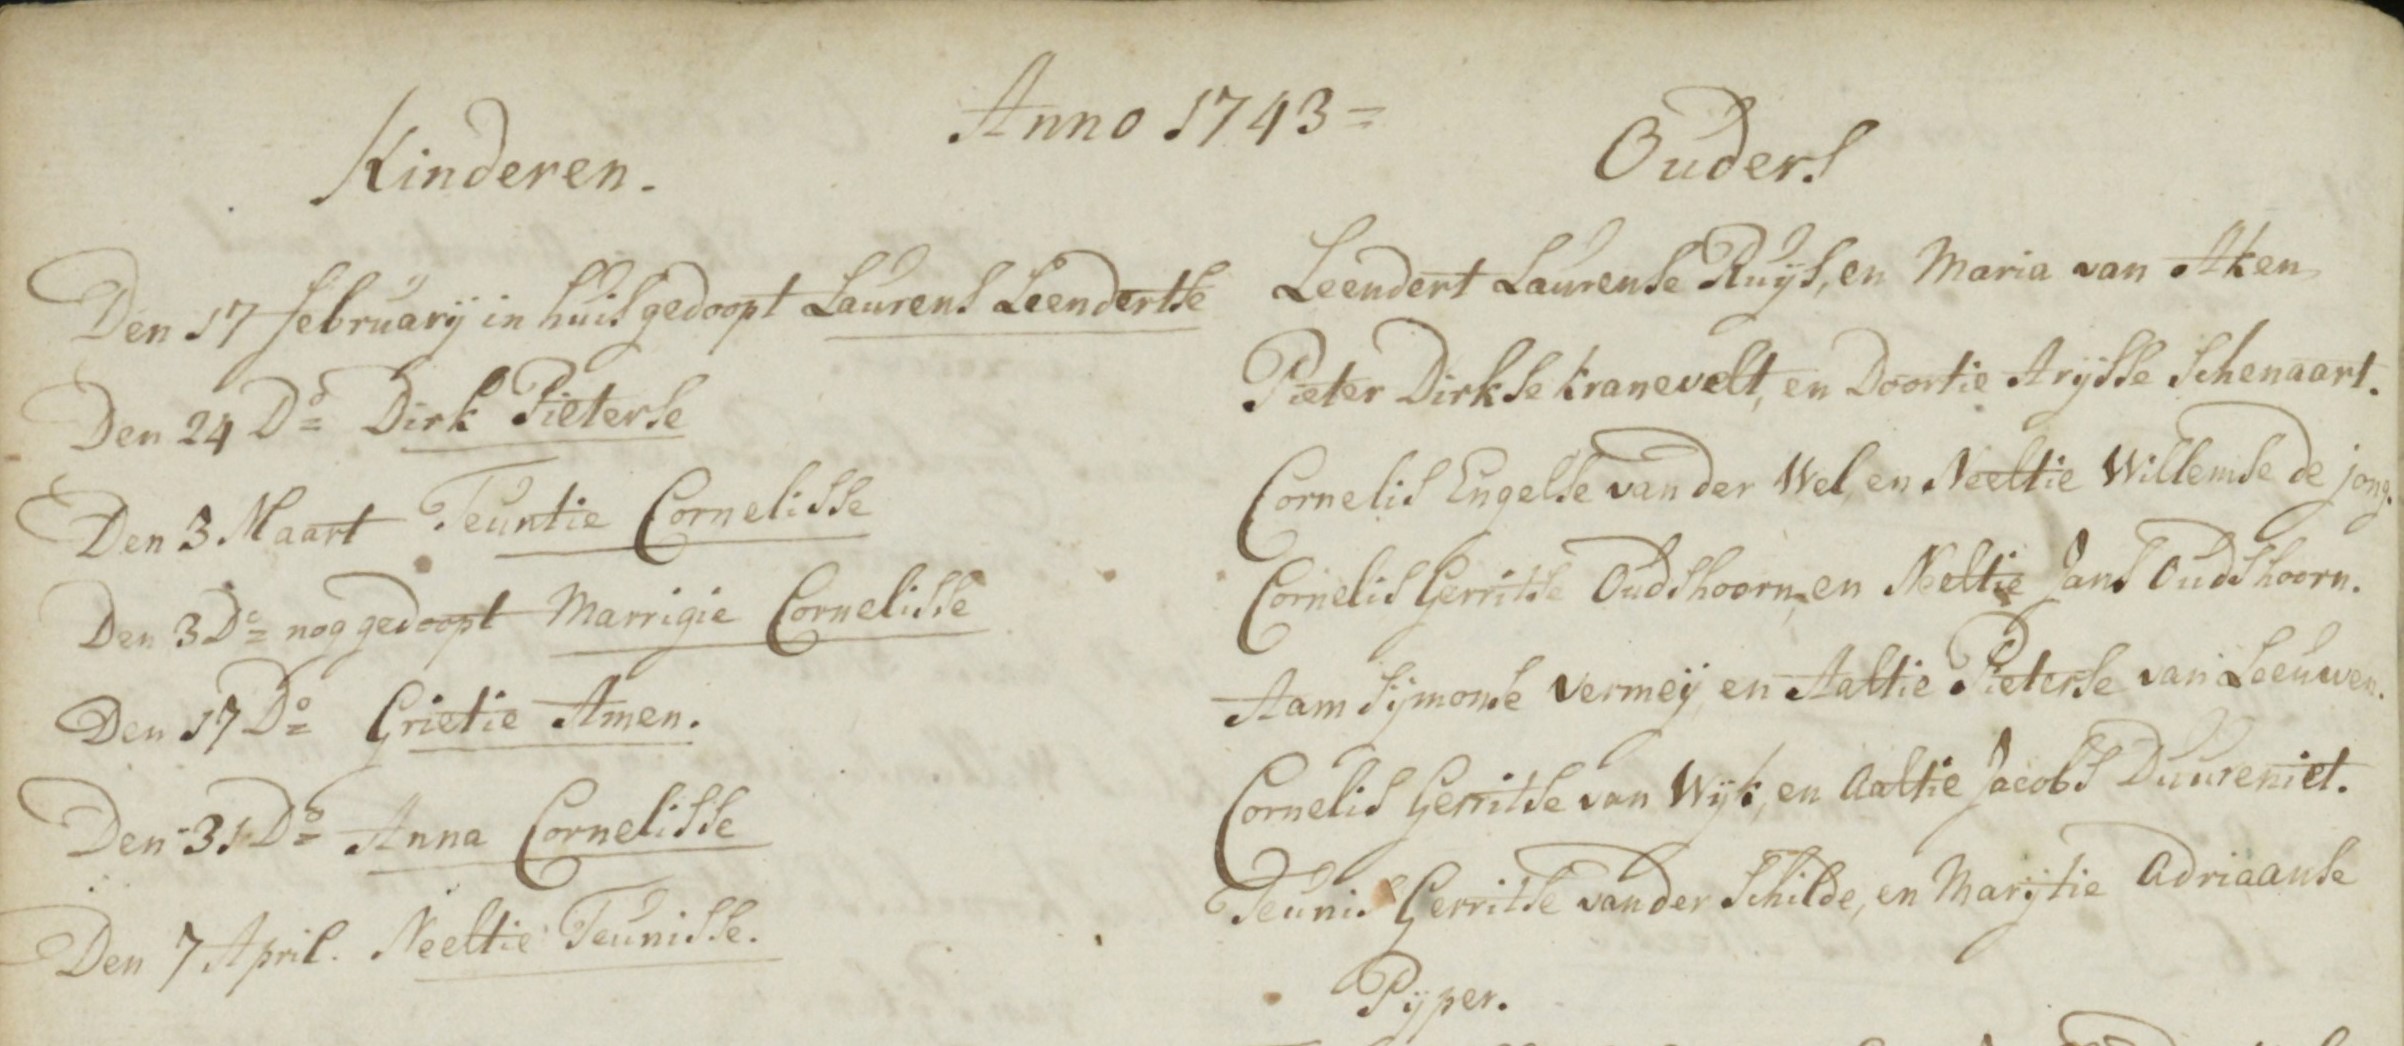 Anno 1743=
Kinderen.
Ouders
Den 17 februarij in huis gedoopt Laurens Leendertse
Leendert Laurense Ruijs, en Maria van Aken
Den 24 Do= Dirk Pieterse
Pieter Dirkse kranevelt, en Doortie Arijsse Schenaart.
Den 3 Maart Teuntie Cornelisse
Cornelis Engelse van der Wel, en Neeltie Willemse de jong.
Den 3 Do= nog gedoopt Marrigie Cornelisse
Cornelis Gerritse Oudshoorn, en Neeltie Jans Oudshoorn.
Den 17 Do= Grietie Amen.
Aam Sijmonse Vermeij en Aaltie Pieterse van Leeuwen.
Den 31 Do= Anna Cornelisse
Cornelis Gerritse van Wijk, en Aaltie Jacobs Duureniet.
Den 7 April. Neeltie Teunisse.
Teunis Gerritse van der Schilde, en Marijtie Adriaanse
Pijper.